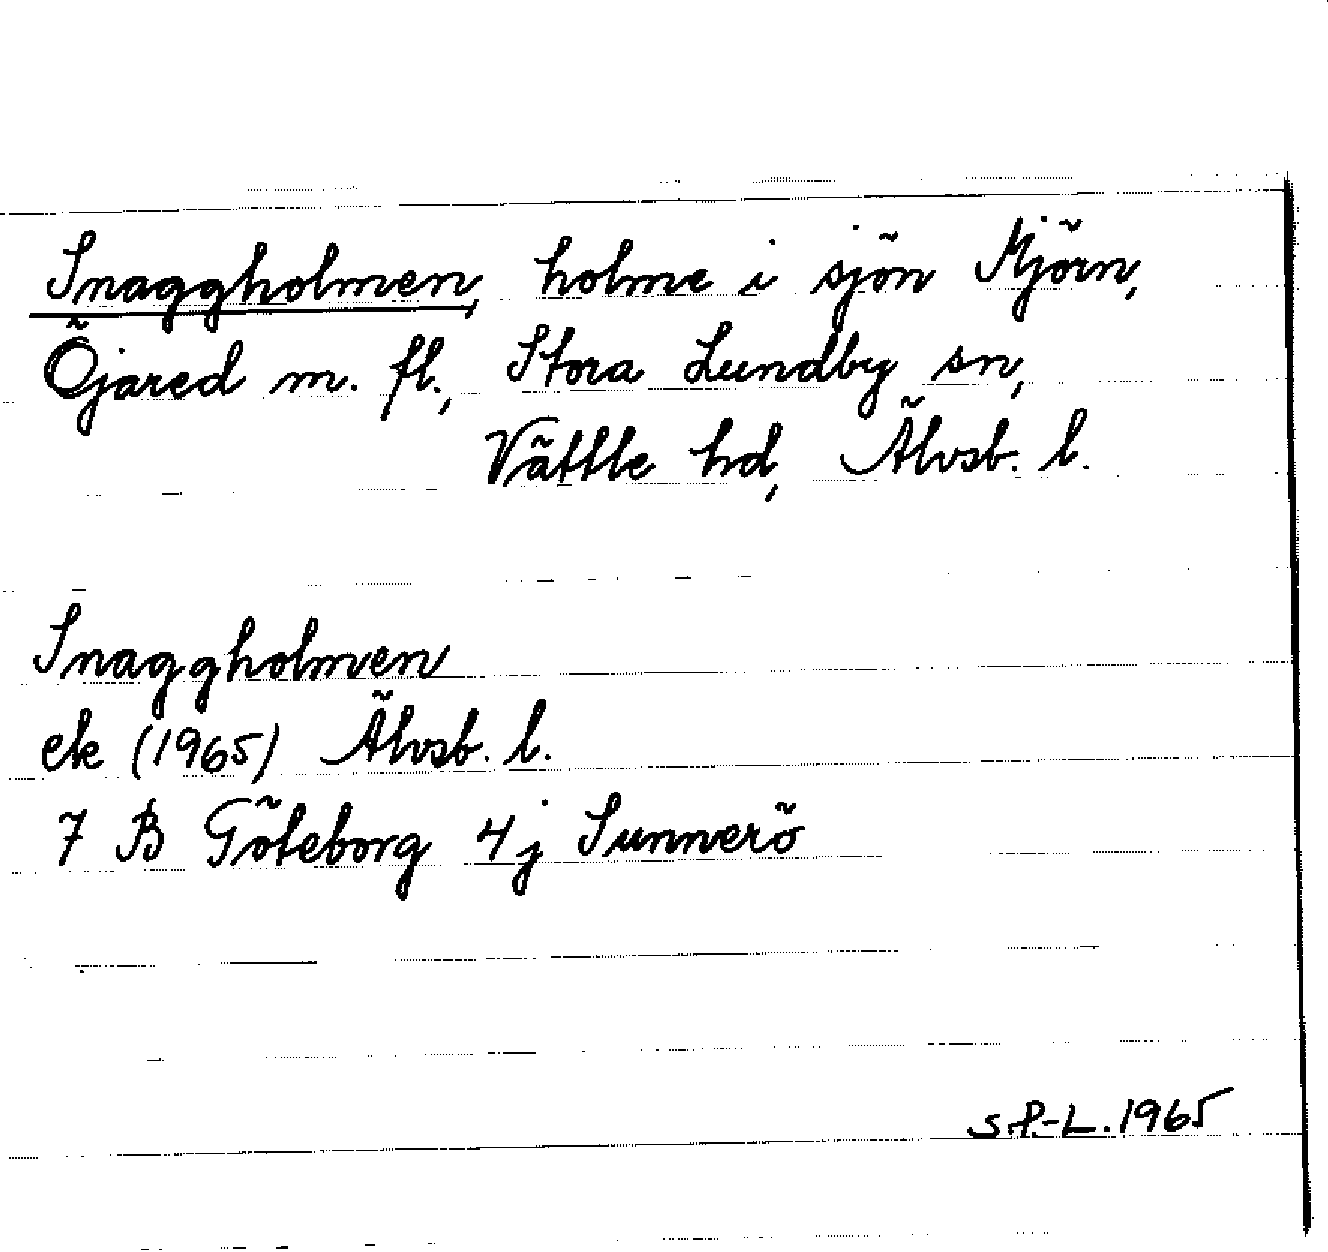 Snaggholmen, holme i sjön Mjörn,
Öjared m. fl., Stora Lundby sn,
Vättle hd, Älvsb. l.
Snaggholmen
ek (1965) Älvsb. l.
7 B Göteborg 4j Sunnerö
S.P.-L. 1965